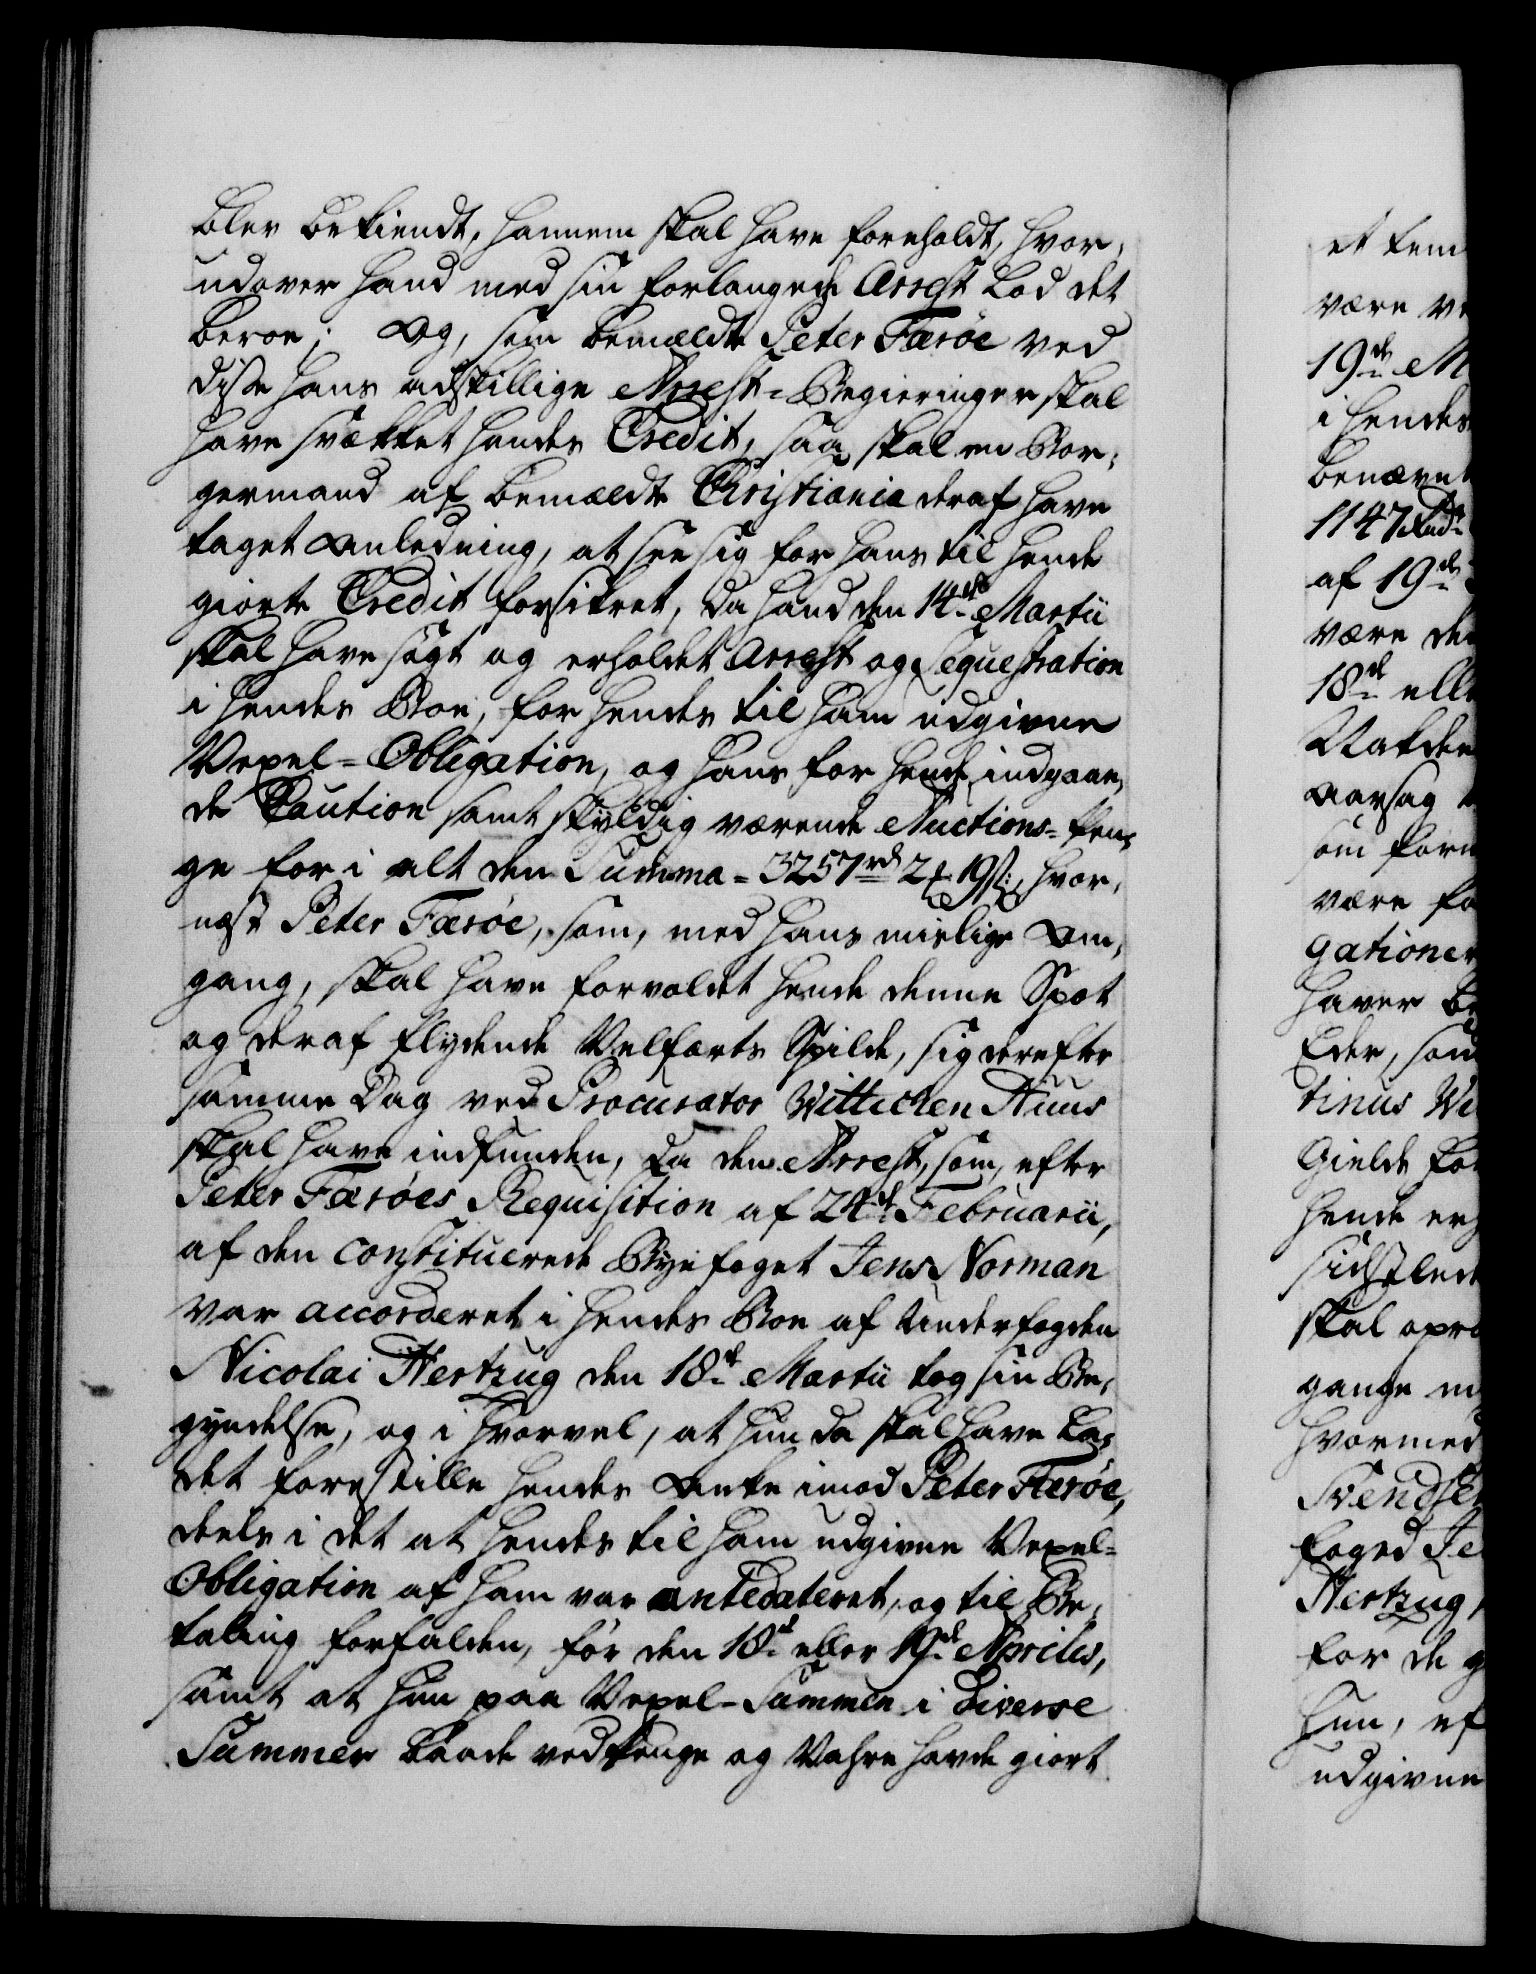 blev bekiendt, hannem skal have foreholdt, hvor,
udover hand med sin forlangede Arrest lod det
beroe; Og, som bemældte Peter Færöe ved
disse hans adskillige Arrest-Begieringer skal
have svækket hendes Credit, saa skal en Bor,
germand af bemældte Christiania deraf have
taget Anledning, at see sig for hans til hende
giorte Credit forsikret, da hand den 14de Martii
skal have søgt og erholdet Arrest og Sequestration
i hendes Boe, for hendes til ham udgivne
Vexel-Obligation, og hans for hende indgaaen,
de Caution samt skyldig værende Auctions-Pen,
ge for i alt den Summa - 3257rd 2 19 s:, hvor,
næst Peter Færöe, som, med hans mislige Om,
gang, skal have forvoldet hende denne Spot
og deraf flydende Velfærts Spilde, sig derefter
samme Dag ved Procurator Wittichen Huus
skal have indfunden, da den Arrest, som, efter
Peter Færöes Requisition af 24de Februarii,
af den constituerede Byefoget Jens Norman
var accorderet i hendes Boe af Underfogden
Nicolai Hertzug den 18de Martii tog sin Be,
gyndelse, og i hvorvel, at hun da skal have la,
det forestille hendes Anke imod Peter Færöe,
deels i det at hendes til ham udgivne Vexel-
Obligation af ham var antedateret, og til Be,
taling forfalden, før den 18de eller 19de Aprilis,
samt at hun paa Vexel-Summen i diverse
Summer baade ved Penge og Vahre havde giort
et tem
være ve
19de M
i hendes
benævnt
1147 Rd
af 19de
være de
18de elle
Natden
Aarsag
som for
være fo
gationer
haver be
Eder, som
tinus Wi
Gields for
hende er
sidstled
skal opra
gange m
hvormed
Svendse
foged Je
Hertzug
for de g
hun, ef
udgivne